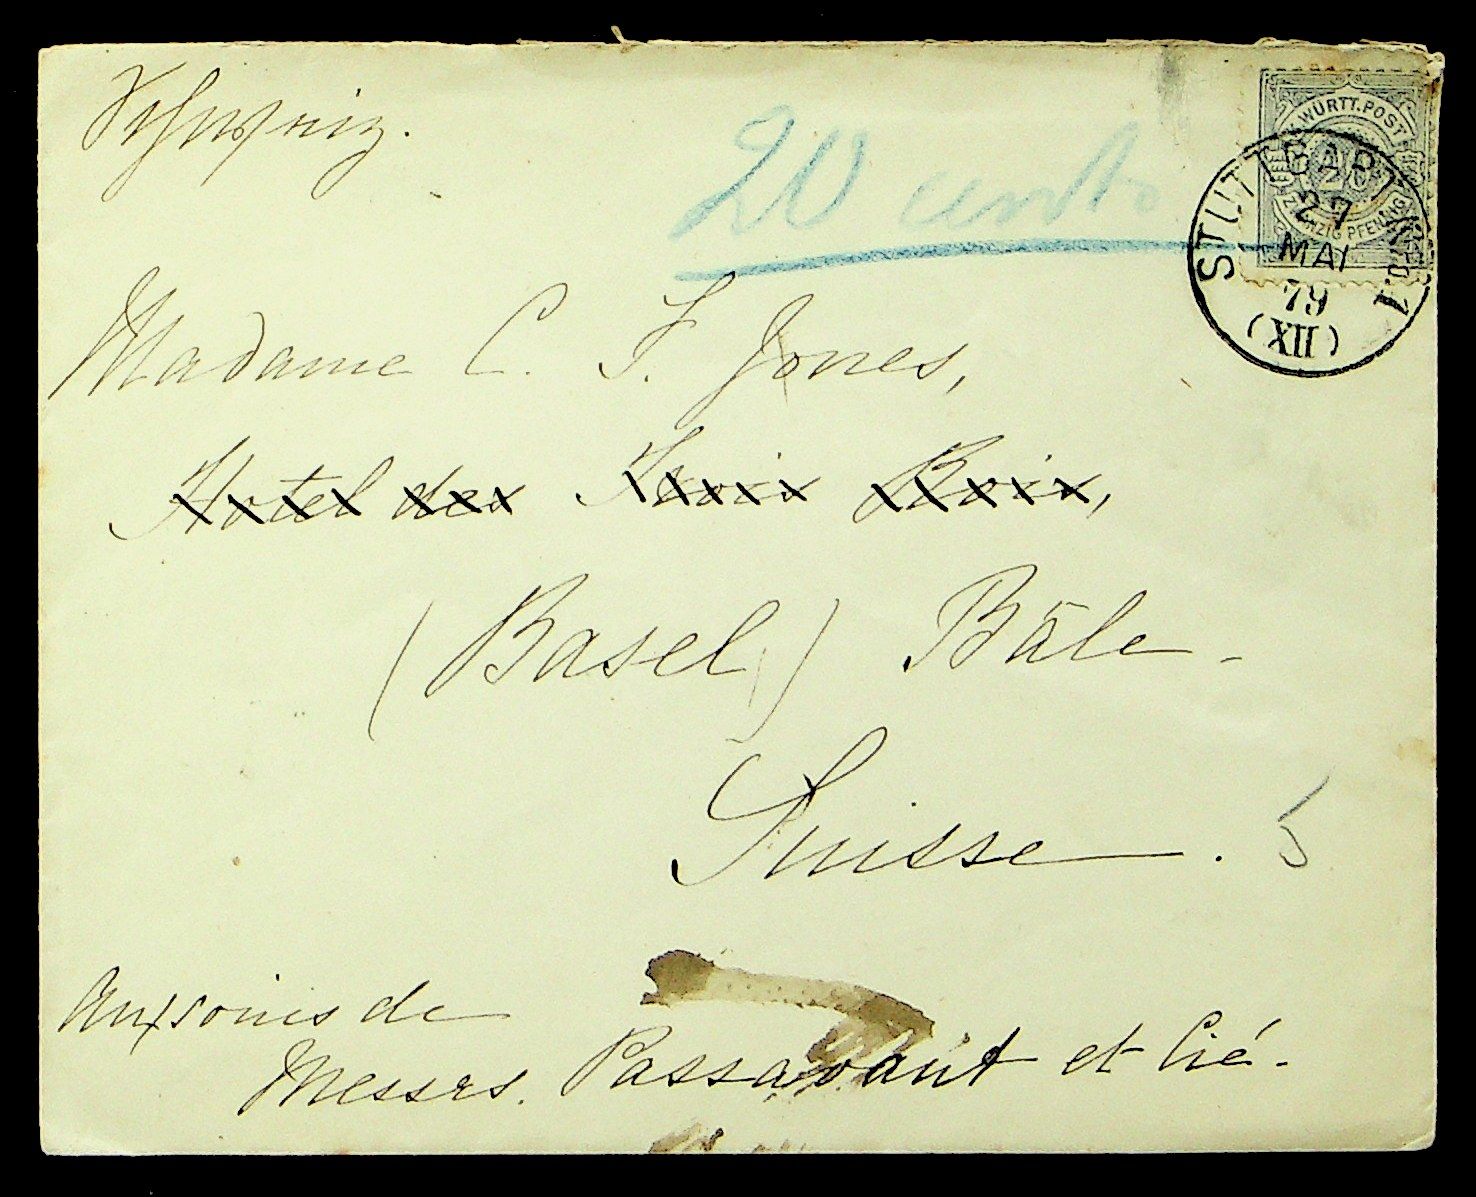 Schweiz.
20 cents
K. WÜRTT. POST
20
ZWANZIG PFENNIG
STUTTGART № 1
27
MAI
79
(XII)
Madame C. F. Jones,
Hotel des Trois Rois,
(Basel) Bâle -
Suisse. 5
Aux soins de
Messrs. Passavant et Cié.